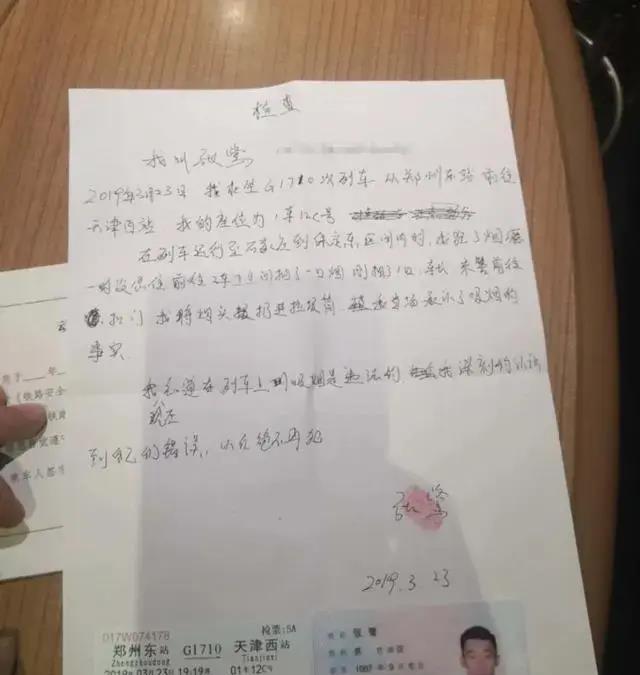 检查
我叫张鹭
2019年3月23日 我乘坐G1710次列车 从郑州东站 前往
天津西站 我的座位为1车12C号
在列车运行至石家庄到保定东区间内时,我犯了烟瘾
一时没忍住 前往2车 间抽了一口烟 刚抽了1口,车长 乘警前往
扣门 我将烟头扔进垃圾筒. 我当场承认了吸烟的
事实.
我知道在列车上吸烟是违法的 深刻的认识
我在
到犯的错误,以后绝不再犯
张鹭
2019.3.23
017W074178 检票:5A
郑州东站 G1710 天津西站
Zhengzhoudong Tianjinxi
2019年03月23日19:19开 01车12C号
姓名 张鹭
性别 男 民族 汉
《铁路安全